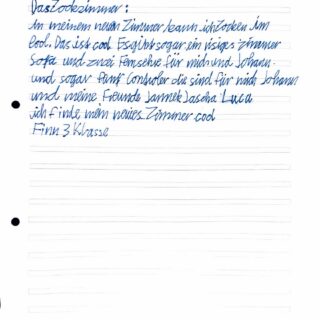 Das Zockezimmer:
In meinem neuen Zimmer kann ich Zocken im
Cool. Das ist cool Es gibt sogar ein riesiges zimmer
Sofa und zwei Fernsehe für mich und Johann.
und sogar fünf Controler die sind für mich Johann
und meine Freunde Jannek Jascha Luca
ich finde mein neues Zimmer cool
Finn 3 Klasse